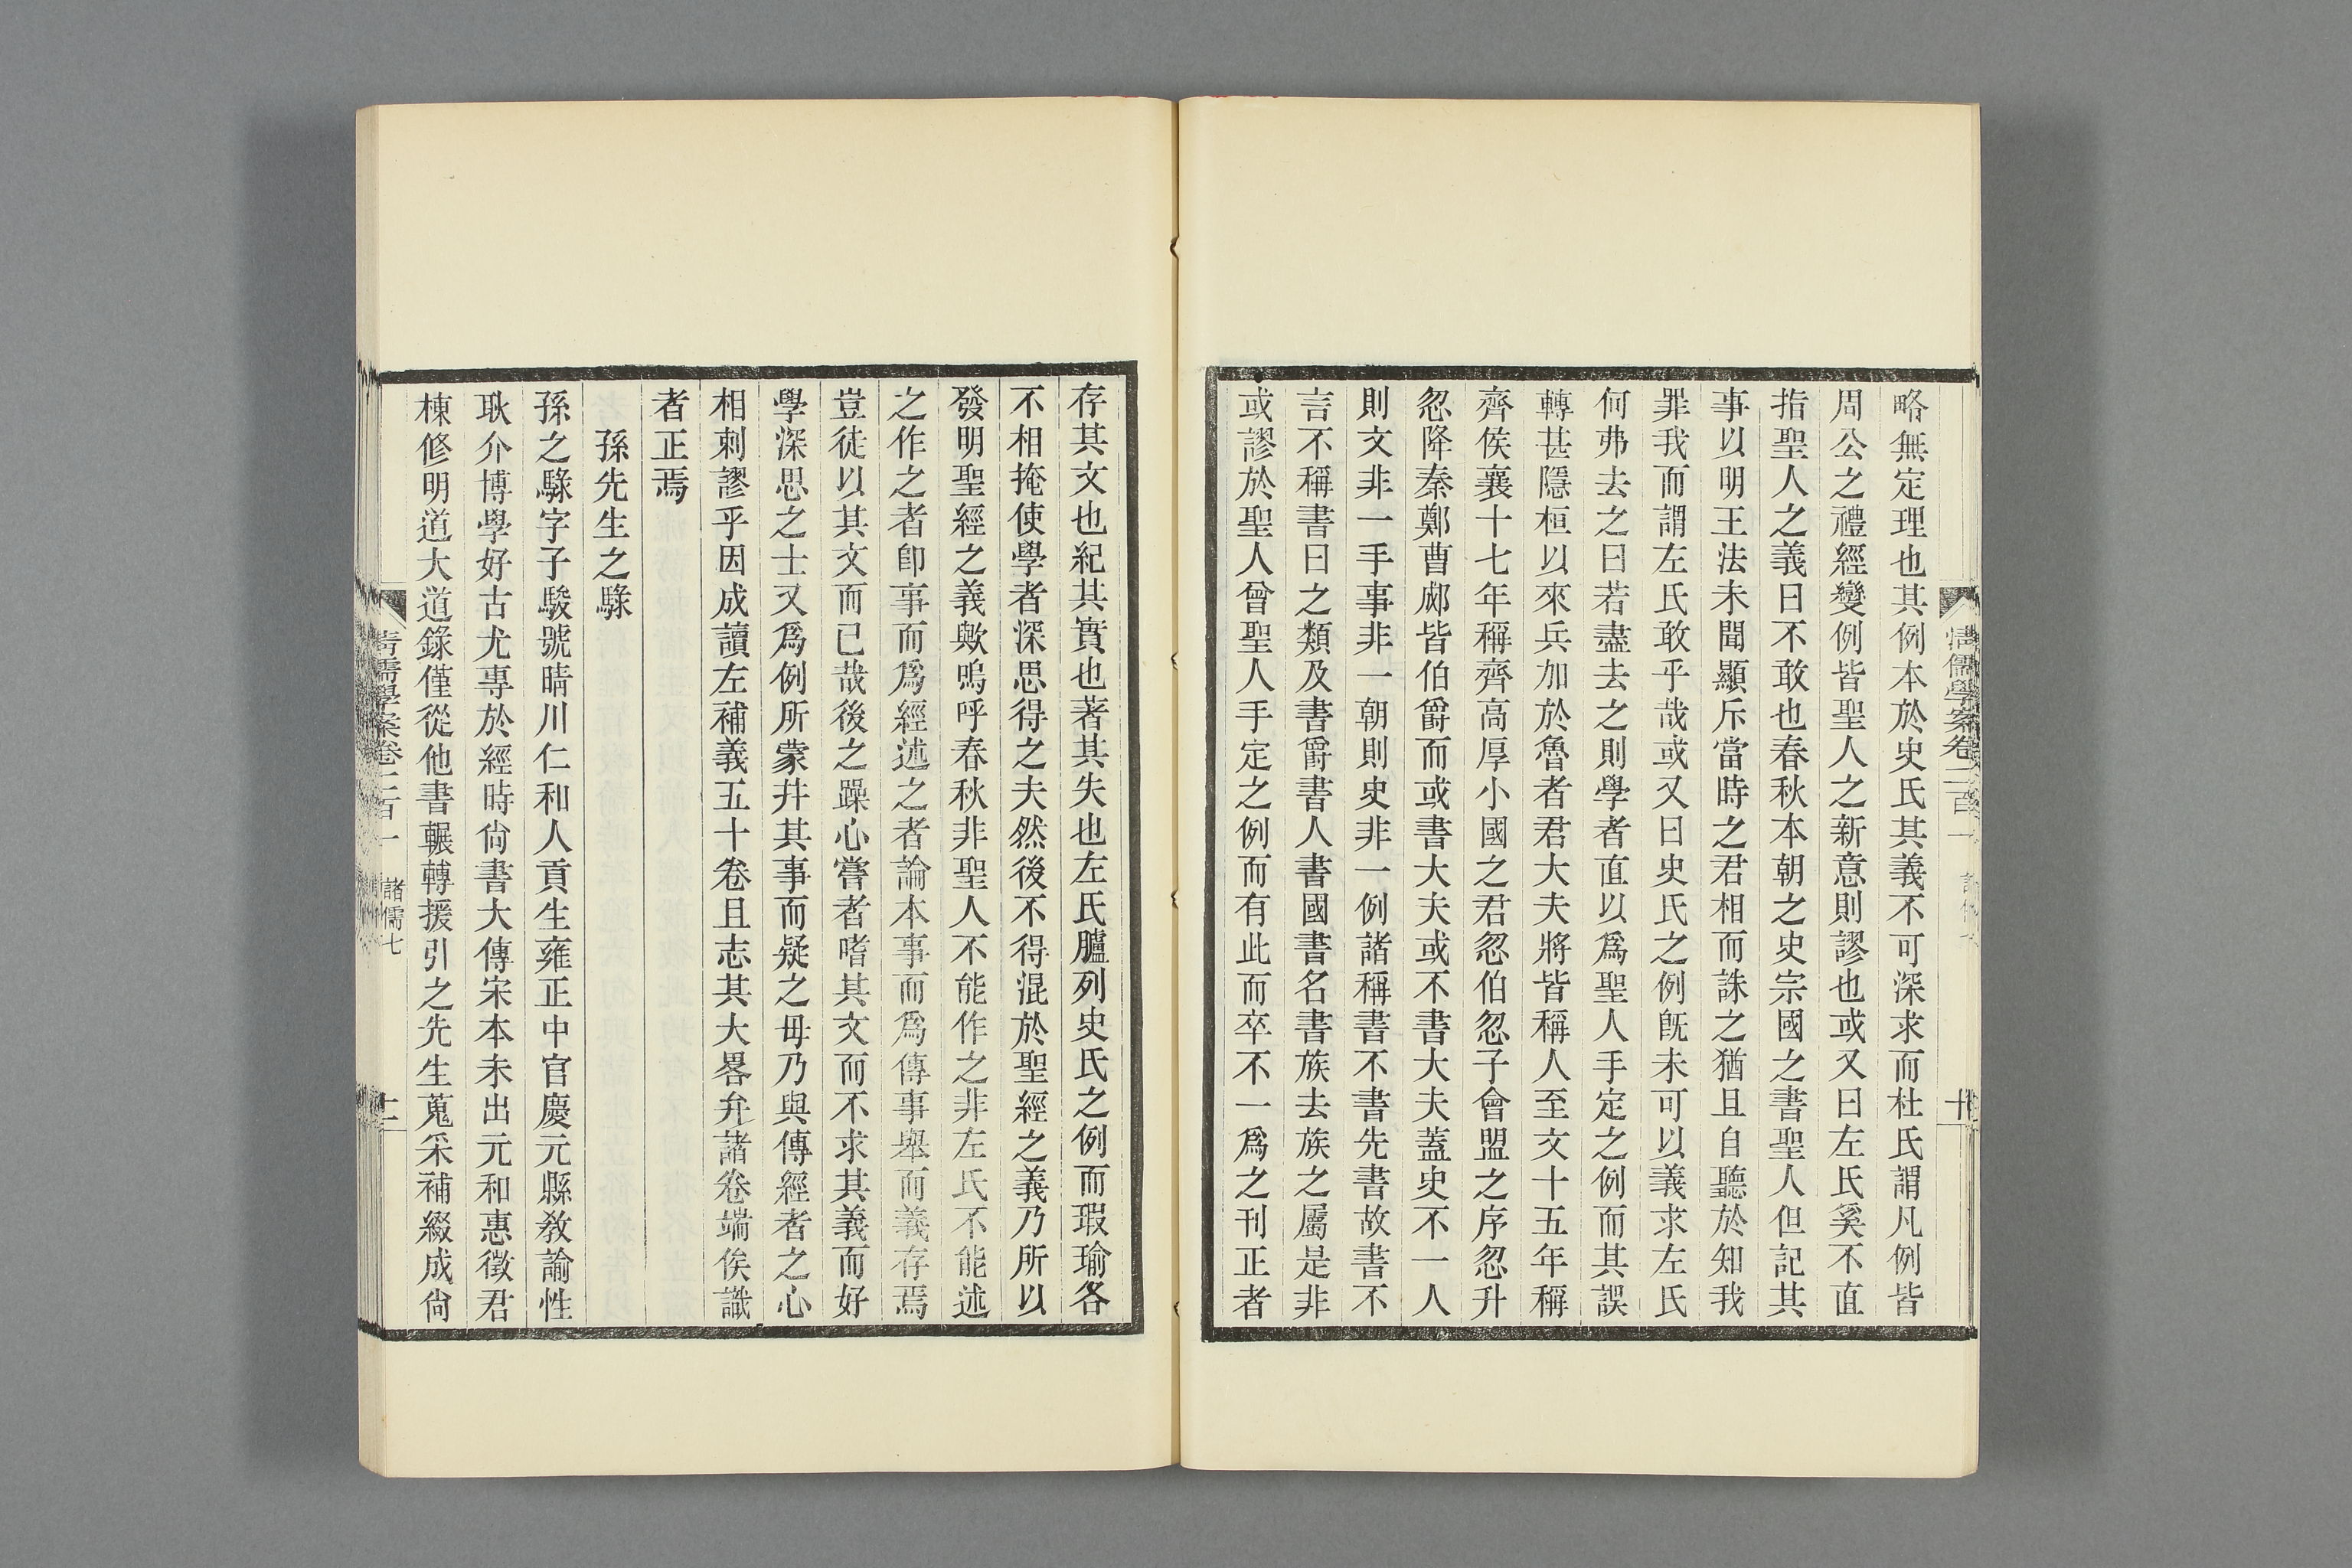 略無定理也其例本於史氏其義不可深求而杜氏謂凡例皆
周公之禮經變例皆聖人之新意則謬也或又曰左氏奚不直
指聖人之義曰不敢也春秋本朝之史宗國之書聖人但記其
事以明王法未聞顯斥當時之君相而誅之猶且自聽於知我
罪我而謂左氏敢乎哉或又曰史氏之例旣未可以義求左氏
何弗去之曰若盡去之則學者直以爲聖人手定之例而其誤
轉甚隱桓以來兵加於魯者君大夫將皆稱人至文十五年稱
齊侯襄十七年稱齊高厚小國之君忽伯忽子會盟之序忽升
忽降秦鄭曹郕皆伯爵而或書大夫或不書大夫蓋史不一人
則文非一手事非一朝則史非一例諸稱書不書先書故書不
言不稱書曰之類及書爵書人書國書名書族去族之屬是非
或謬於聖人曾聖人手定之例而有此而卒不一爲之刊正者
存其文也紀其實也著其失也左氏臚列史氏之例而瑕瑜各
不相掩使學者深思得之夫然後不得混於聖經之義乃所以
發明聖經之義歟嗚呼春秋非聖人不能作之非左氏不能述
之作之者卽事而爲經述之者論本事而爲傳事舉而義存焉
豈徒以其文而已哉後之躁心嘗者嗜其文而不求其義而好
學深思之士又爲例所蒙幷其事而疑之毋乃與傳經者之心
相刺謬乎因成讀左補義五十卷且志其大畧弁諸卷端俟識
者正焉
孫先生之騄
孫之騄字子駿號晴川仁和人貢生雍正中官慶元縣敎諭性
耿介博學好古尤專於經時尙書大傳宋本未出元和惠徵君
棟修明道大道錄僅從他書輾轉援引之先生蒐采補綴成尙
清儒學案卷二百一 諸儒七